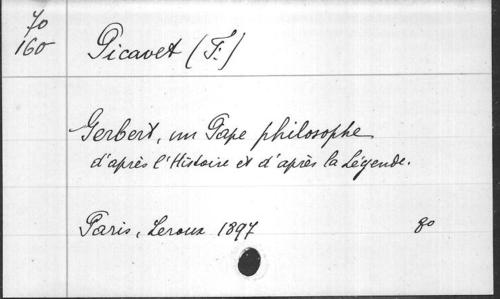 70
160
Picavet (F.)
Gerbert, un Pape philosophe
d'après l'Histoire et d'après la Légende.
Paris, Leroux 1897 8o